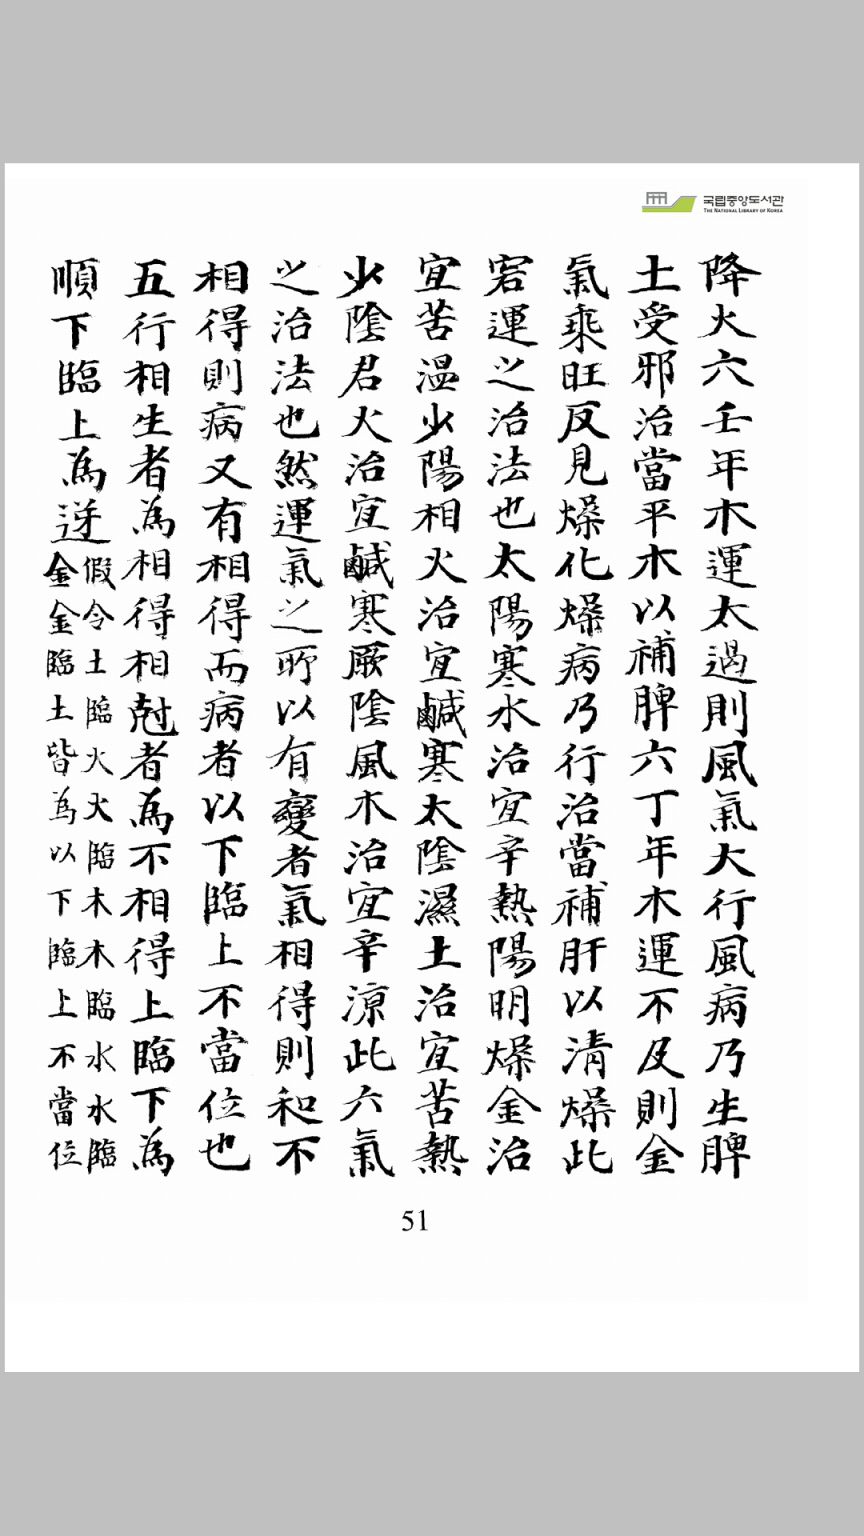 국립중앙도서관
THE NATIONAL LIBRARY OF KOREA
降火六壬年木運太過則風氣大行風病乃生脾
土受邪治當平木以補脾六丁年木運不及則金
氣乘旺反見燥化燥病乃行治當補肝以清燥此
宕運之治法也太陽寒水治宜辛熱陽明燥金治
宜苦溫少陽相火治宜鹹寒太陰濕土治宜苦熱
少陰君火治宜鹹寒厥陰風木治宜辛涼此六氣
之治法也然運氣之所以有變者氣相得則和不
相得則病又有相得而病者以下臨上不當位也
五行相生者為相得相尅者為不相得上臨下為
順下臨上為逆
假令土臨火火臨木木臨水水臨
金金臨土皆為以下臨上不當位
51